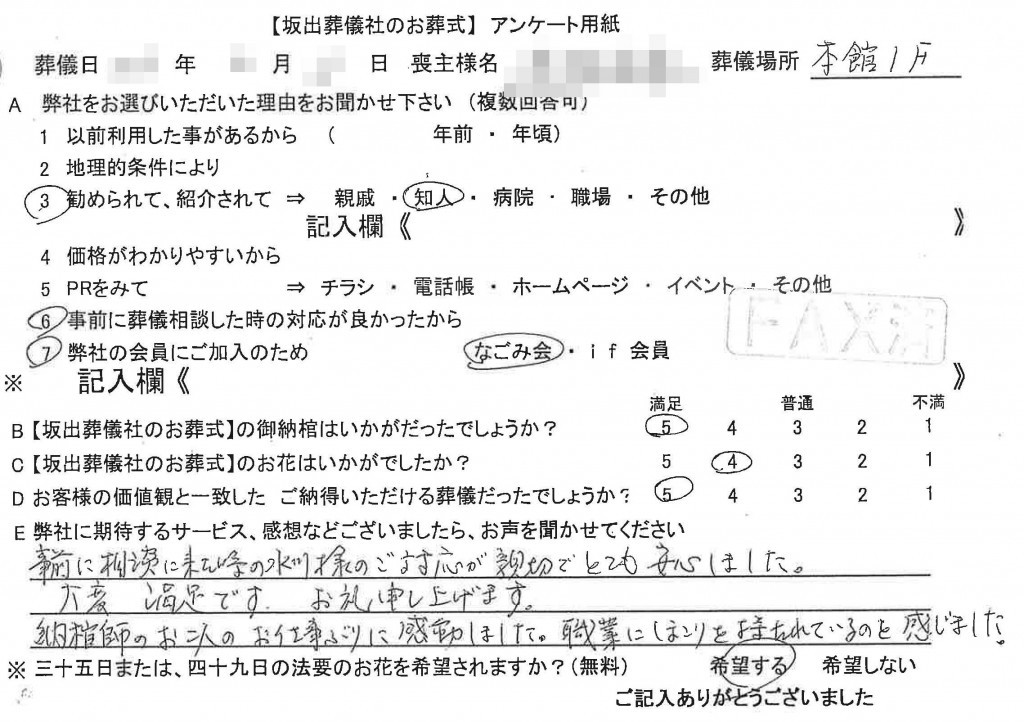 【坂出葬儀社のお葬式】 アンケート用紙
葬儀日 年 月 日 喪主様名 葬儀場所 本館1F
A 弊社をお選びいただいた理由をお聞かせ下さい (複数回答可)
1 以前利用した事があるから ( 年前 ・ 年頃)
2 地理的条件により
3 勧められて、紹介されて ⇒ 親戚 ・ 知人 ・ 病院 ・ 職場 ・ その他
記入欄《 》
4 価格がわかりやすいから
5 PRをみて ⇒ チラシ ・ 電話帳 ・ ホームページ ・ イベント ・ その他
6 事前に葬儀相談した時の対応が良かったから
FAX済
7 弊社の会員にご加入のため なごみ会 ・ if会員
※ 記入欄《 》
満足 普通 不満
B 【坂出葬儀社のお葬式】の御納棺はいかがだったでしょうか? 5 4 3 2 1
C 【坂出葬儀社のお葬式】のお花はいかがでしたか? 5 4 3 2 1
D お客様の価値観と一致した ご納得いただける葬儀だったでしょうか? 5 4 3 2 1
E 弊社に期待するサービス、感想などございましたら、お声を聞かせてください
事前に相談に来た時の氷川様のご対応が親切でとても安心しました。
大変 満足です. お礼申し上げます。
納棺師のお二人のお仕事ぶりに感動しました。職業にほこりを持たれているのを感じました。
※ 三十五日または、四十九日の法要のお花を希望されますか?(無料) 希望する 希望しない
ご記入ありがとうございました